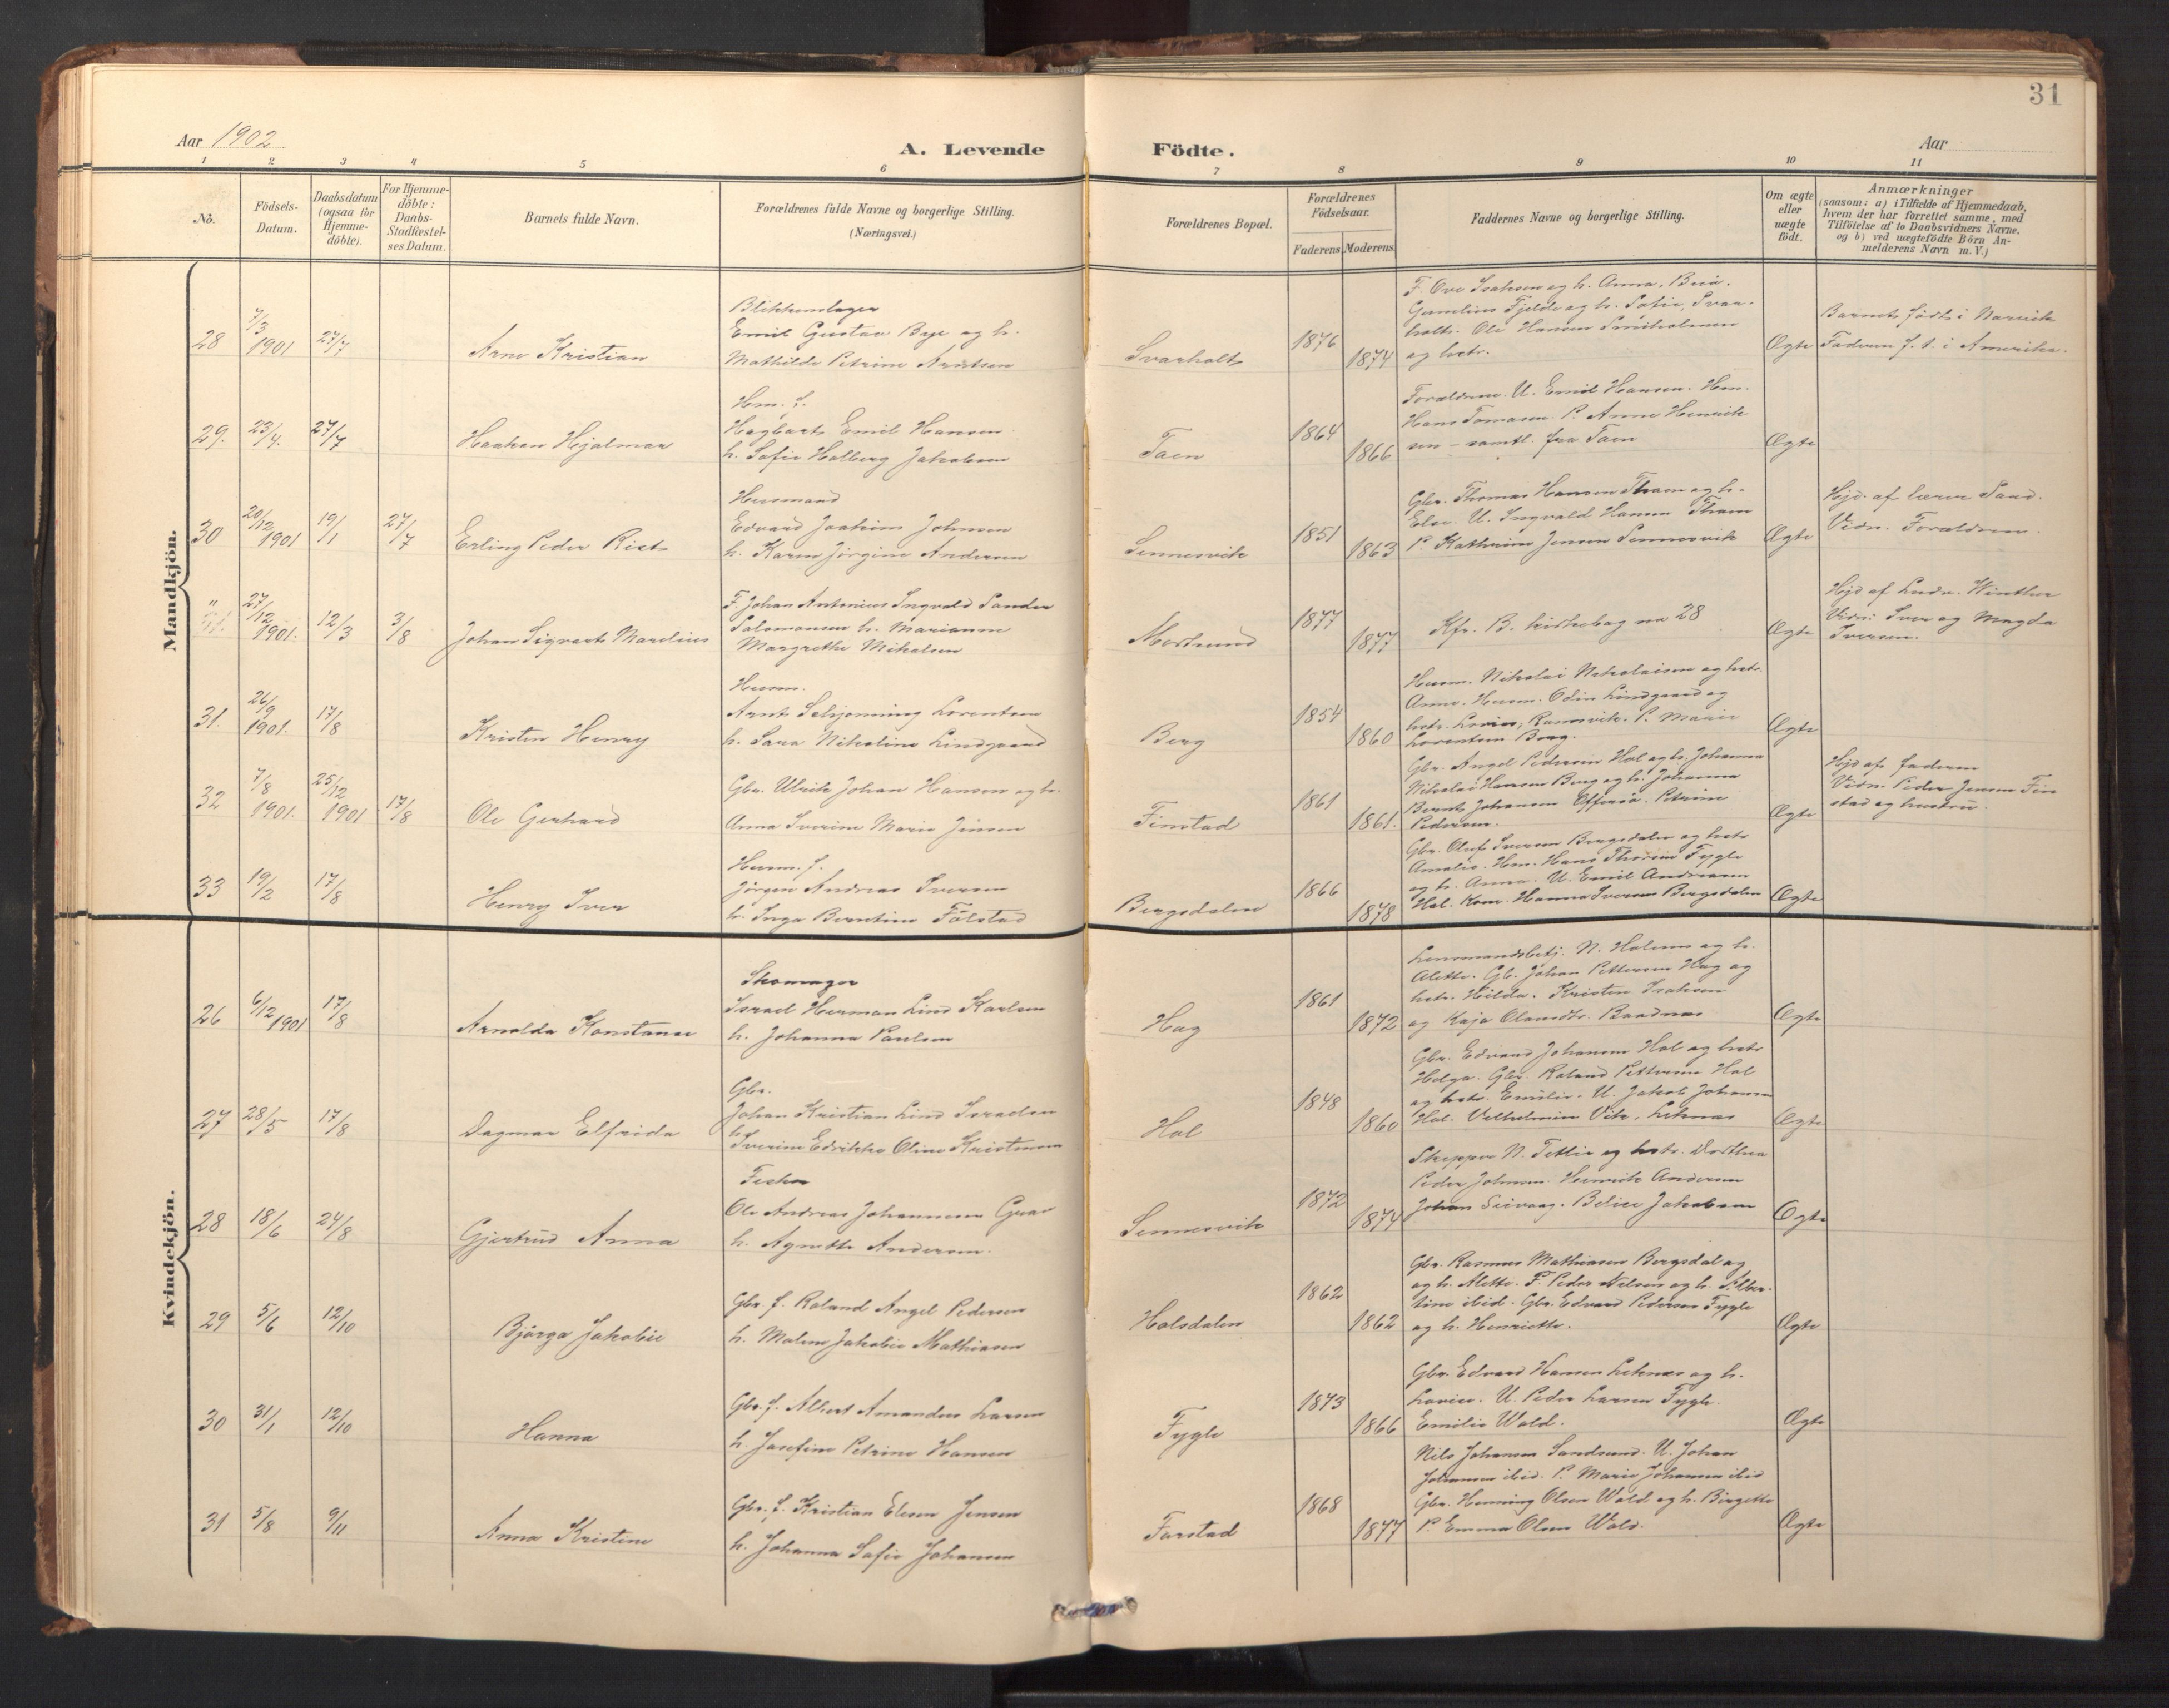 31
Aar 1902
A. Levende Födte.
Aar
1 2 3 4 5 6 7 8 9 10 11
No.
Födsels-
Datum.
Daabsdatum
(ogsaa för
Hjemme-
döbte).
For Hjemme-
döbte:
Daabs-
Stadfæstel-
ses Datum.
Barnets fulde Navn.
Forældrenes fulde Navne og borgerlige Stilling.
(Næringsvei.)
Forældrenes Bopæl.
Forældrenes
Födselsaar.
Faderens. Moderens.
Faddernes Navne og borgerlige Stilling.
Om ægte
eller
uægte
födt.
Anmærkninger
(saasom: a) i Tilfælde af Hjemmedaab,
hvem der har forrettet samme, med
Tilföielse af to Daabsvidners Navne,
og b) ved uægtefödte Börn An-
melderens Navn m. V.)
Mandkjön.
28
7/3
1901
27/7
Arne Kristian
Blikkenslager
Emil Gustav Bye og h.
Mathilde Petrine Arntsen
Svarholt
1876
1874
F. Ove Isaksen og h. Anna, Buö.
Fjelde og h. Sofie, Svar-
holt. Ole Hansen
og hstr.
Ægte
Barnet födt i Narvik
Faderen f. t. i Amerika.
29.
23/4.
27/7
Haakon Hjalmar
Hm. f.
Hagbart Emil Hansen
h. Sofie Holberg Jakobsen
Taen
1864
1866
Forældrene. U. Emil Hansen. Hm.
Hans Tomasen. P. Anne Henrik
sen – samtl. fra Taen
Ægte
30
20/12
1901
19/1
27/7
Erling Peder Rist
Husmand
Edvard Joakim Johnsen
h. Karen Jörgine Andersen
Sennesvik
1851
1863
Gbr. Thomas Hansen Tham og h.
Else. U. Ingvald Hansen Tham
P. Kathrine Jensen Sennesvik
Ægte
Hjd. af lærer Sand.
Vidn. Forældrene.
"
27/12
1901.
12/3
3/8
Johan Sigvart Marelius
F. Johan Antonius Ingvald Sander
Salomonsen h. Marianne
Margrethe Mikalsen
Mortsund
1877
1877
Kfr. B. kirkebog no 28
Ægte
Hjd af Winther
Vidn: Iver og Magda
Iversen.
31.
26/9
1901.
17/8
Kristen Henry
Husm.
Arnt Lorentsen
h. Sara Nikoline Lindgaard
Berg
1854
1860
Husm. Nikolai Nikolaisen og hstr.
Anne. Husm. Odin Lindgaard og
hstr. Lovise, Ramsvik. P. Marie
Lorentsen Berg.
Ægte
32
7/8
1901.
25/12
1901
17/8
Ole Gerhard
Gbr. Ulrik Johan Hansen og h.
Anna Iverine Marie Jensen
Finstad
1861
1861.
Gbr. Angel Pedersen Hol og h. Johanna
Nikolai Hansen Berg og h. Johanna
Bernt Johansen Offersö. Petrine
Pedersen.
Ægte
Hjd af faderen
Vidn. Peder Jensen Fin
stad og hustru.
33
19/2
17/8
Henry Iver
Husm. f.
Jörgen Andreas Iversen
h. Inga Berntine Fölstad
Bergsdalen
1866
1878
Gbr. Oluf Iversen Bergsdalen og hstr
Amalie. Hm. Hans Thorsen Fygle
og h. Anna. U. Emil Andreasen
Hol. Kone Hanna Iversen Bergsdalen
Ægte
Kvindekjön.
26
6/12 1901
17/8
Arnolda Konstanse
Skomager
Israel Herman Lind Karlsen
h. Johanna Paulsen
Hag
1861
1872
Lensmandsbetj. N. Halsen og h.
Alette. Gb. Johan Pettersen Hag og
hstr. Hilda. Kristen Isaksen
og Kaja Olausdtr. Baadnes
Ægte
27
28/5
17/8
Dagmar Elfrida
Gbr.
Johan Kristian Lind Israelsen
h.
Iverine Edrikke Oline Kristensen
Hol
1848
1860
Gbr. Edvard Johansen Hol og hstr
Helga. Gbr. Roland Pettersen Hol
og hstr. Emilie. U. Jakob Johansen
Hol. Vilhelmine Vik, Leknes
Ægte
28
18/6
24/8
Gjertrud Anna
Fisker
Ole Andreas Johannesen
h. Agnette Andersen.
Sennesvik
1872
1874
Skipper N. Tetlie og hstr. Dorthea
Peder Johnsen. Henrik Andersen
Johan Jakobsen
Ægte
29
5/6
12/10
Björga Jakobie
Gbr. f. Roland Angel Pedersen
h. Malene Jakobie Mathiasen
Holsdalen
1862
1862
Gbr. Rasmus Mathiasen Bergsdal og
og h. Alette. F. Peder Nilsen og h. Alber-
tine ibid. Gbr. Edvard Pedersen Fygle
og h. Henriette.
Ægte
30
31/1
12/10
Hanna
Gbr. f. Albert Amandus Larsen
h. Josefine Petrine Hansen
Fygle
1873
1866
Gbr. Edvard Hansen Leknes og h.
Lovise. U. Peder Larsen Fygle.
Emilie Wold.
Ægte
31
5/8
9/11
Anna Kristine
Gbr. f. Kristian Elesen Jensen
h. Johanna Sofie Johansen
Farstad
1868
1877
Nils Johansen Sandsund. U. Johan
Johansen ibid. P. Marie Johansen ibid
Gbr. Henning Olsen Wold og h. Birgette
P. Emma Olsen Wold.
Ægte